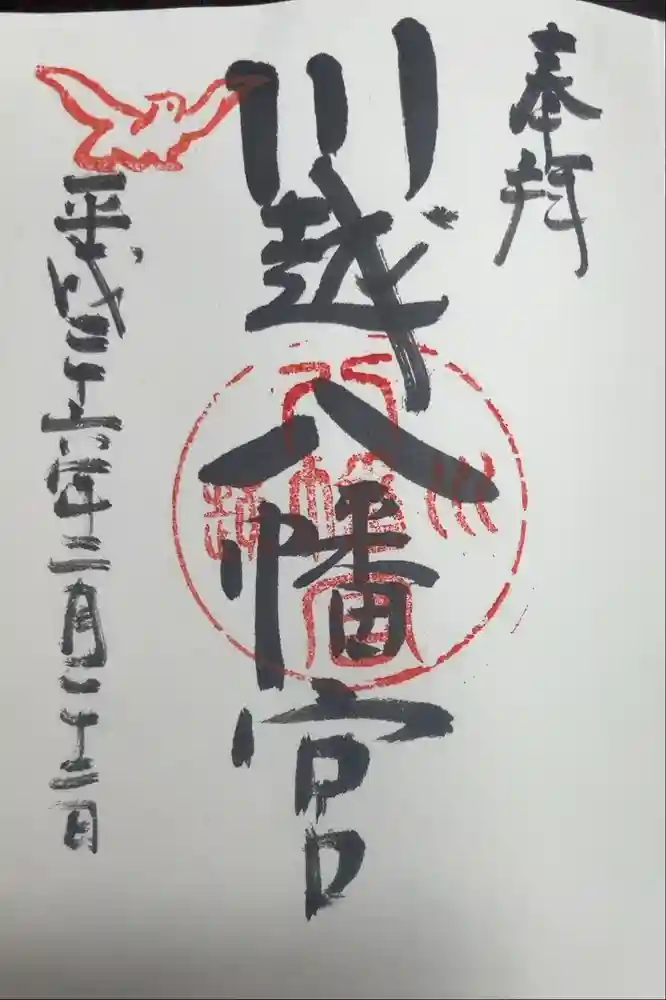 奉拝
川越八幡宮
川越
八幡宮
平成二十六年二月二十二日